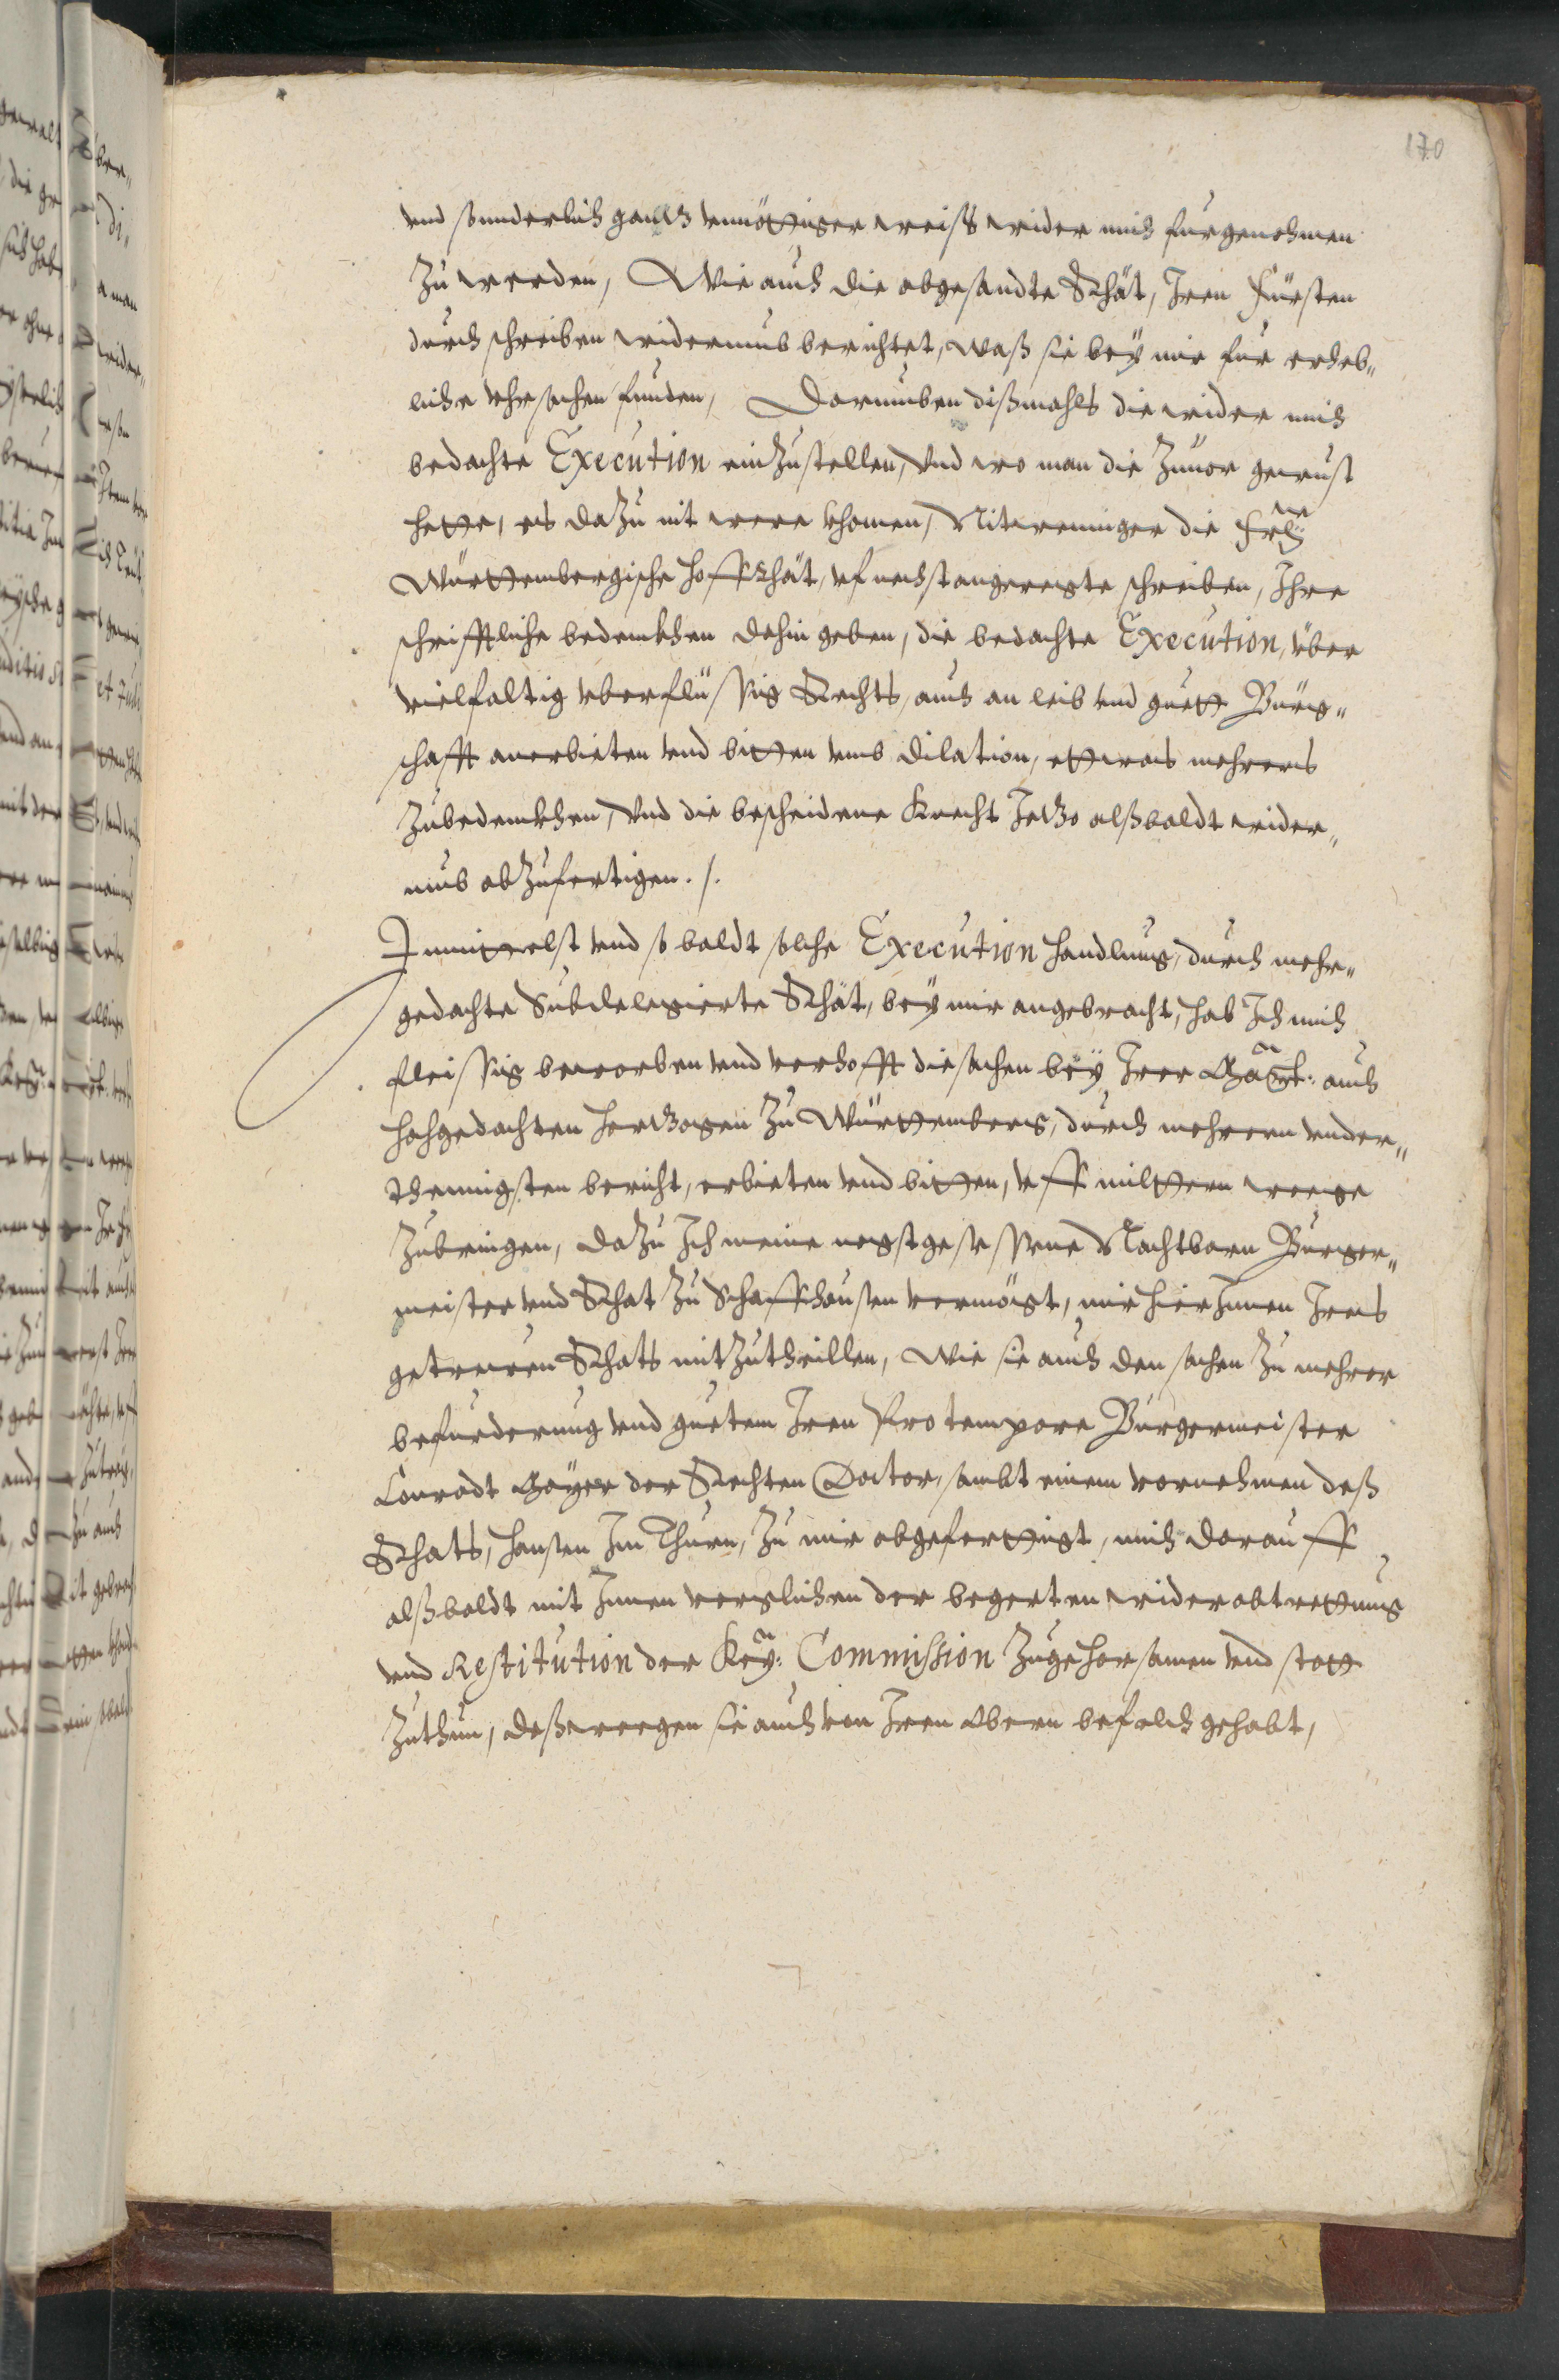 170
vnd sonderlich gantz vnnöttiger weiß wider mich furgenohmen
zu werden, Wie auch die abgesandte Rhät, Iren Fürsten
durch schreiben widerumb berichtet, waß sie bey mir für erheb„
liche vhrsachen funden, Darumben dißmahls die wider mich
bedachte Execution einzustellen, Vnd wo man die Zuuor gewust
hette, es dazu nit were khomen, Nitweniger die
Württembergische hoffRhät, vf nechstangeregte schreiben, Ihre
schrifftliche bedenckhen dahin geben, die bedachte Execution, über
vielfaltig vberflüssig Rechts, auch an leib vnd guett Bürg„
schafft anerbieten vnd bitten vmb dilation, ettwas mehrers
zubedenckhen, Vnd die bescheidene Knecht Jetzo alßbaldt wider„
umb abzufertigen. /.
Inmittelst vnd so baldt solche Execution handlung, durch mehr„
gedachte Subdelegierte Rhät, bey mir angebracht, hab Ich mich
fleissig beworben vnd verhofft die sachen bey Irer auch
hochgedachten Hertzogen zu Württemberg, durch mehrern vnder„
thenigsten bericht, erbieten vnd bitten, vff miltern weege
zubringen, dazu Ich meine negstgesessene Nachtbarn Burger„
meister vnd Rhat zu Schaffhausen vermögt, mir hierInnen Ires
getrewen Rhats mitzutheillen, Wie sie auch den sachen zu mehrer
befurderung vnd guetem Iren Pro tempore Burgermeister
Conradt Mayer der Rechten Doctor, sambt einem vornehmen deß
Rhats, Hansen Im Thurn, zu mir abgeferttigt, mich darauff
alßbaldt mit Innen verglichen der begerten widerabtrettung
vnd Restitution der Key: Commission zugehorsamen vnd statt
zuthun, deßweegen sie auch von Iren Obern befelch gehabt,